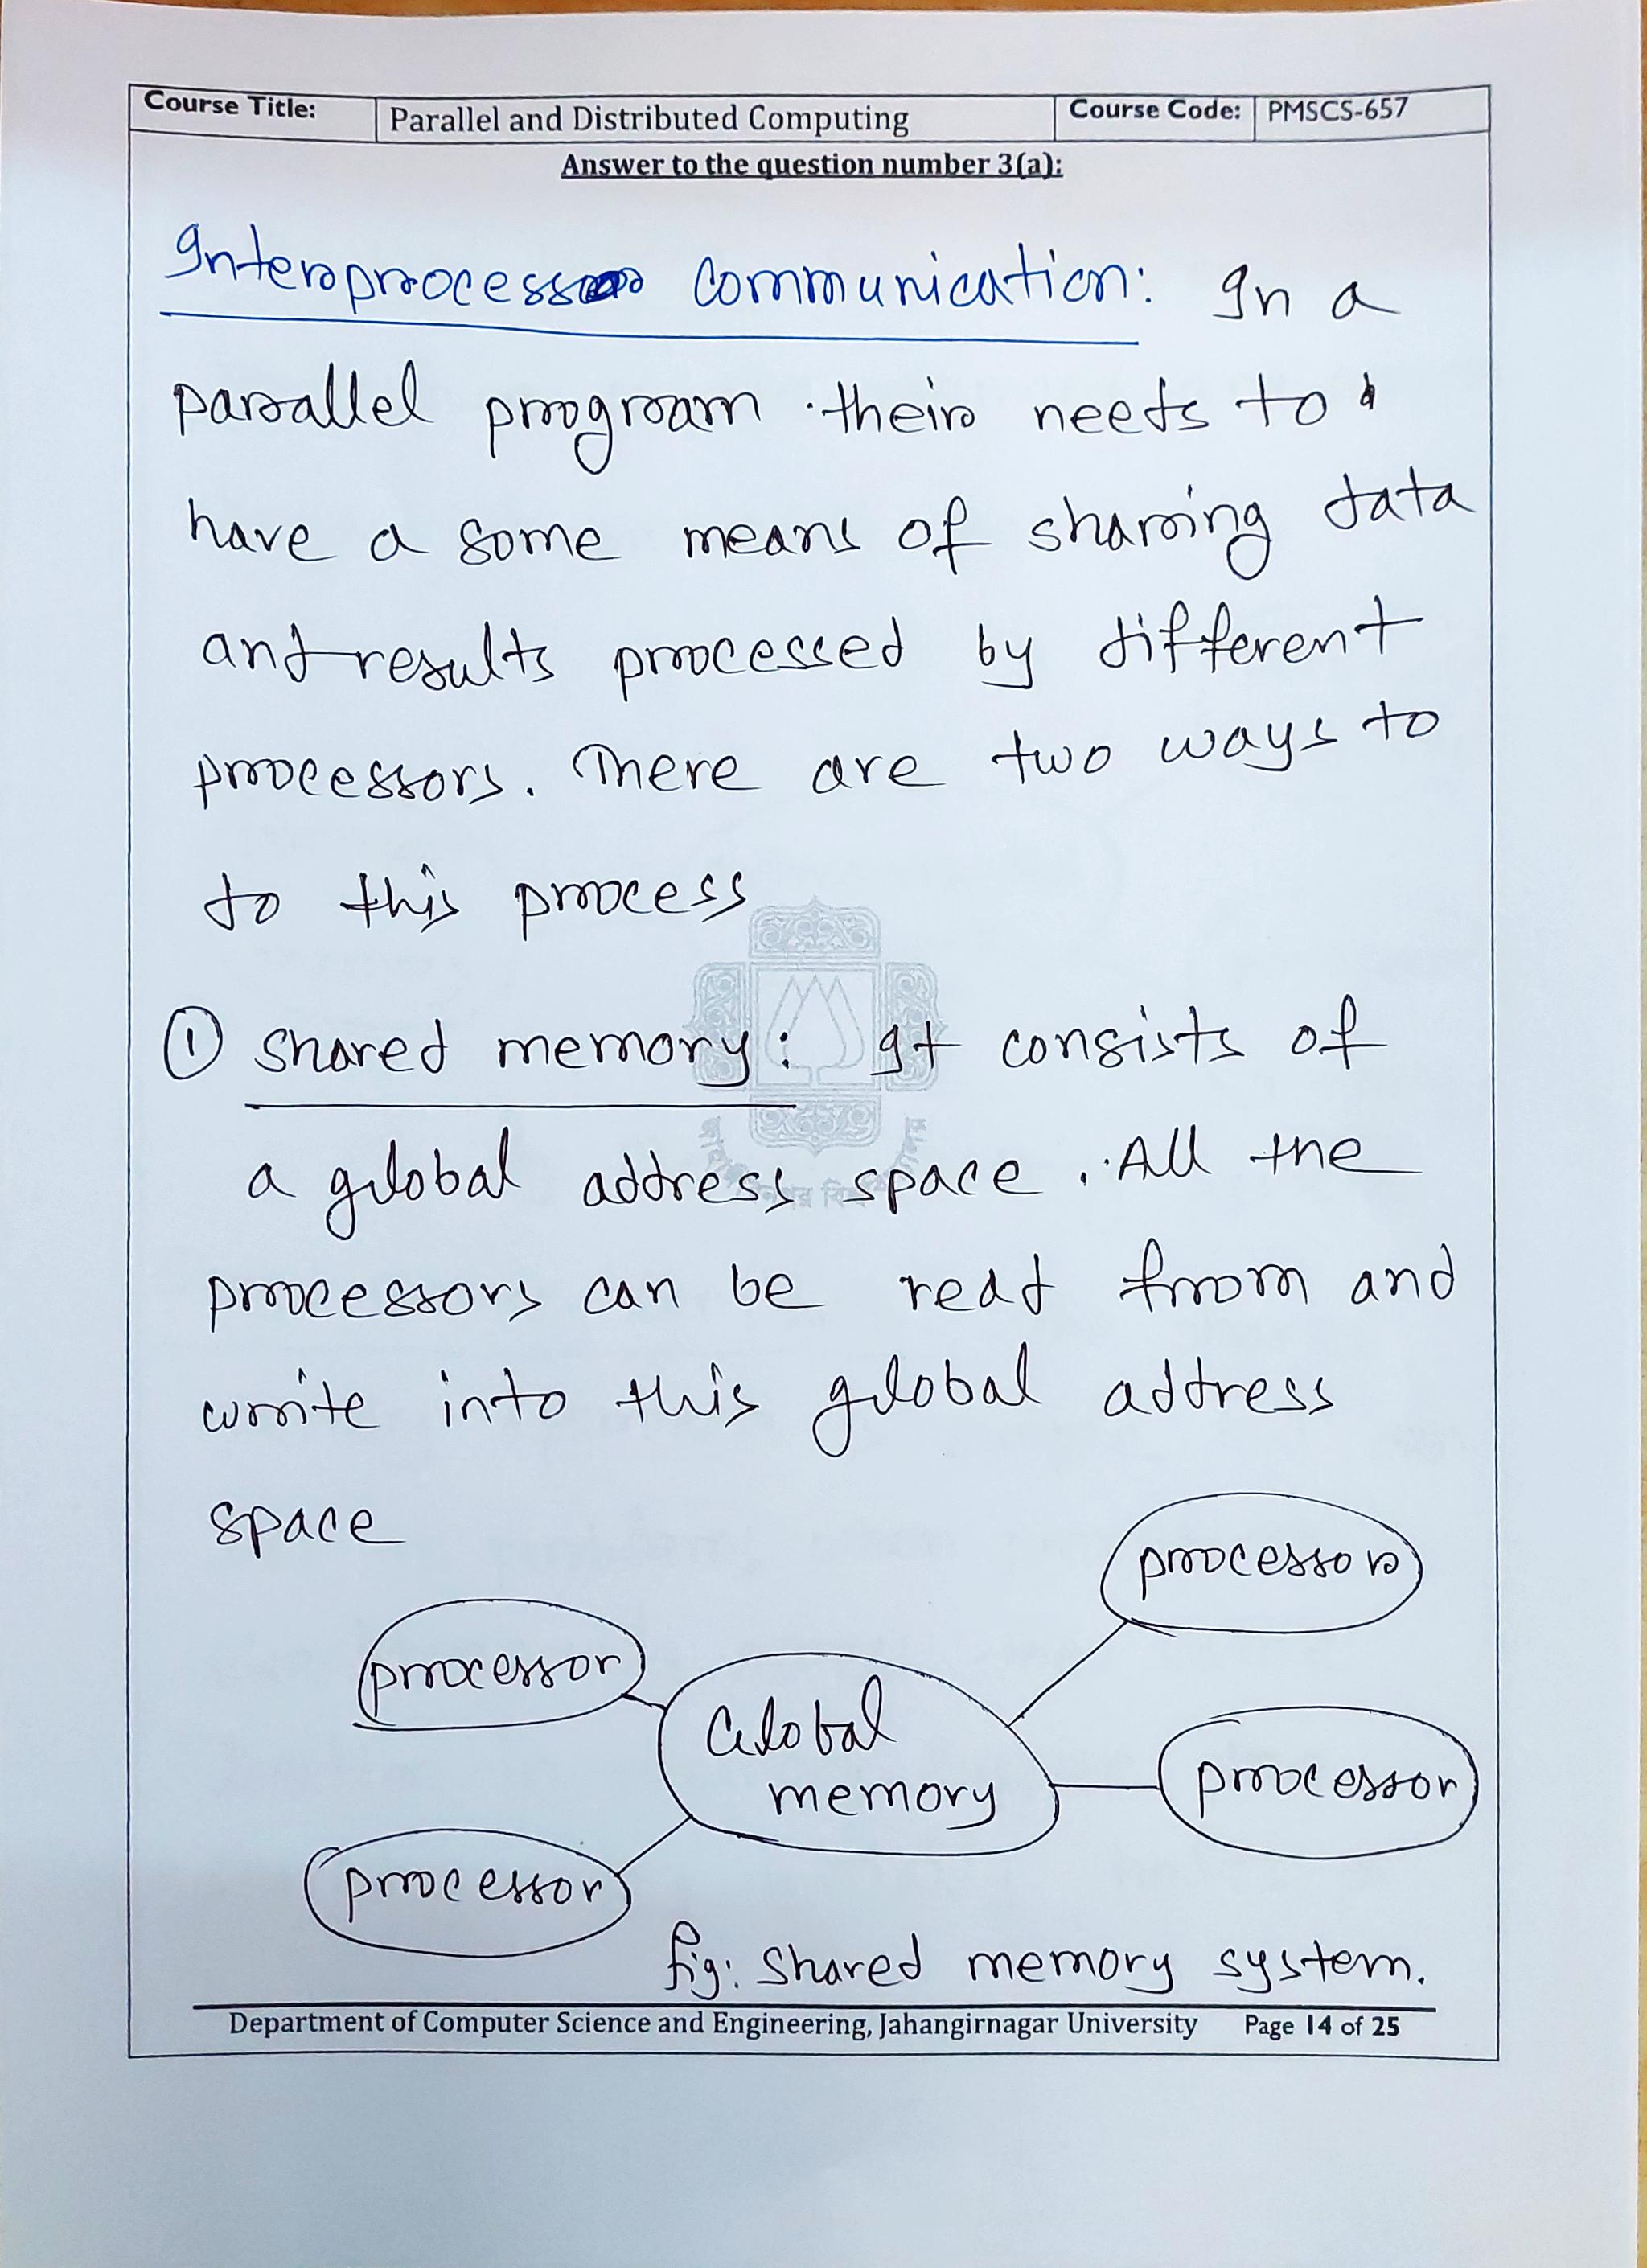 Course Title: Parallel and Distributed Computing Course Code: PMSCS-657
Answer to the question number 3(a):
Interprocess communication: In a
parallel program their needs to
have a some means of sharing data
and results processed by different
processors. There are two ways to
to this process
① Shared memory: It consists of
a global address space. All the
processors can be read from and
write into this global address
space
processor
processor
Global
memory
processor
processor
fig: Shared memory system.
Department of Computer Science and Engineering, Jahangirnagar University Page 14 of 25